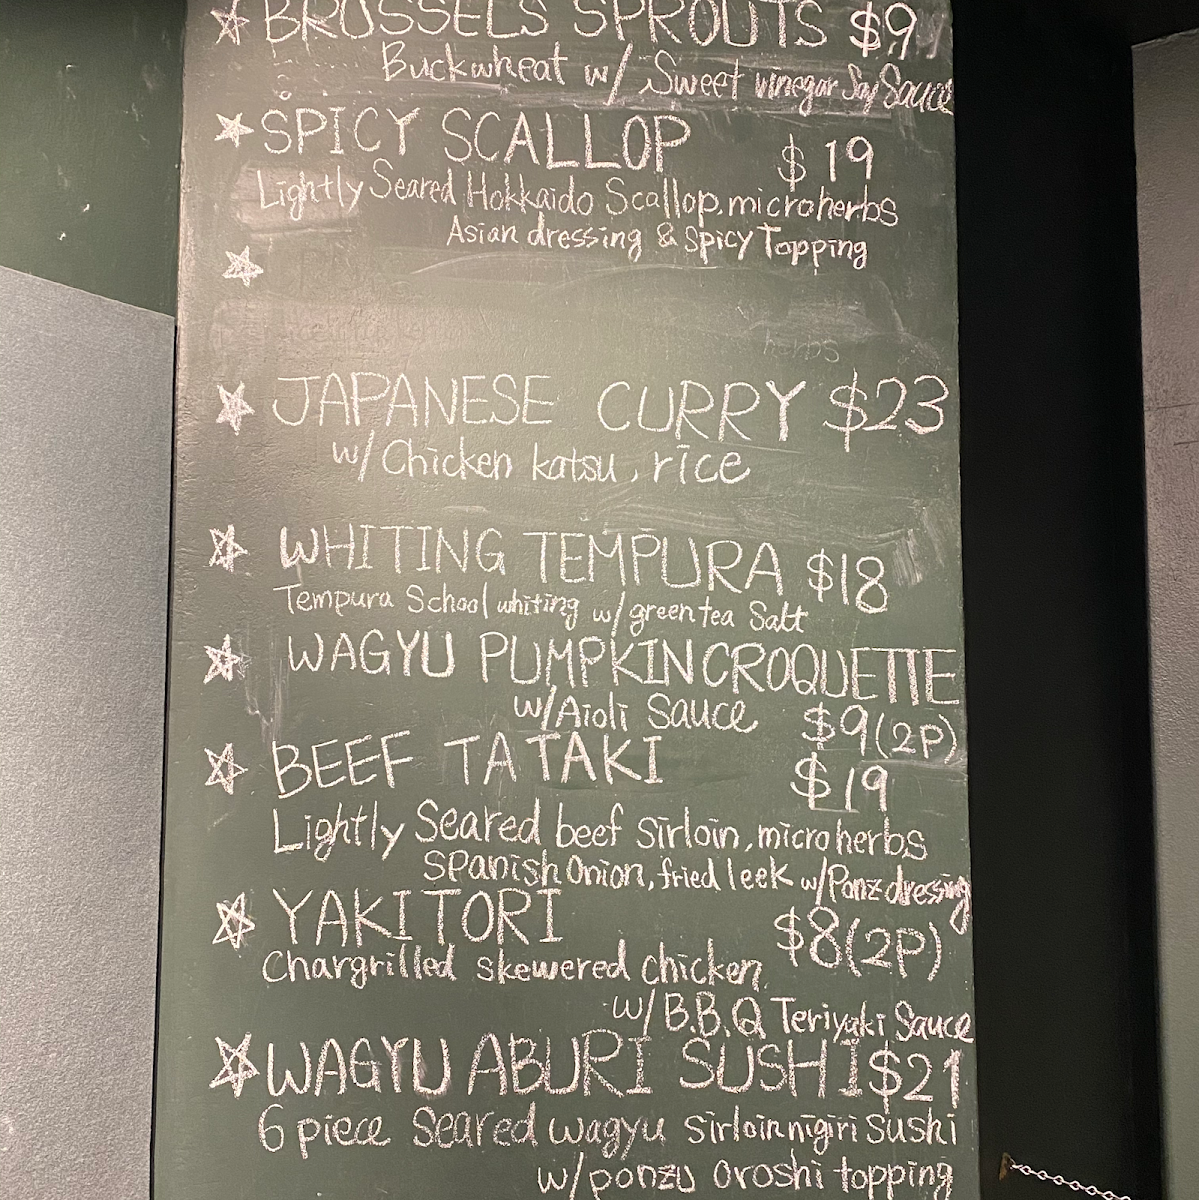 BRUSSELS SPROUTS $9
Buckwheat w/ Sweet vinegar Soy Sauce
SPICY SCALLOP $19
Lightly Seared Hokkaido Scallop, microherbs
Asian dressing & Spicy Topping
herbs
JAPANESE CURRY $23
w/ Chicken katsu, rice
WHITING TEMPURA $18
Tempura School whiting w/ green tea Salt
WAGYU PUMPKIN CROQUETTE
w/ Aioli Sauce $9 (2P)
BEEF TATAKI $19
Lightly Seared beef sirloin, micro herbs
Spanish Onion, fried leek w/ Ponz dressing
YAKITORI $8 (2P)
Chargrilled skewered chicken
w/ B.B.Q Teriyaki Sauce
WAGYU ABURI SUSHI $21
6 piece Seared wagyu sirloin nigiri Sushi
w/ ponzu oroshi topping